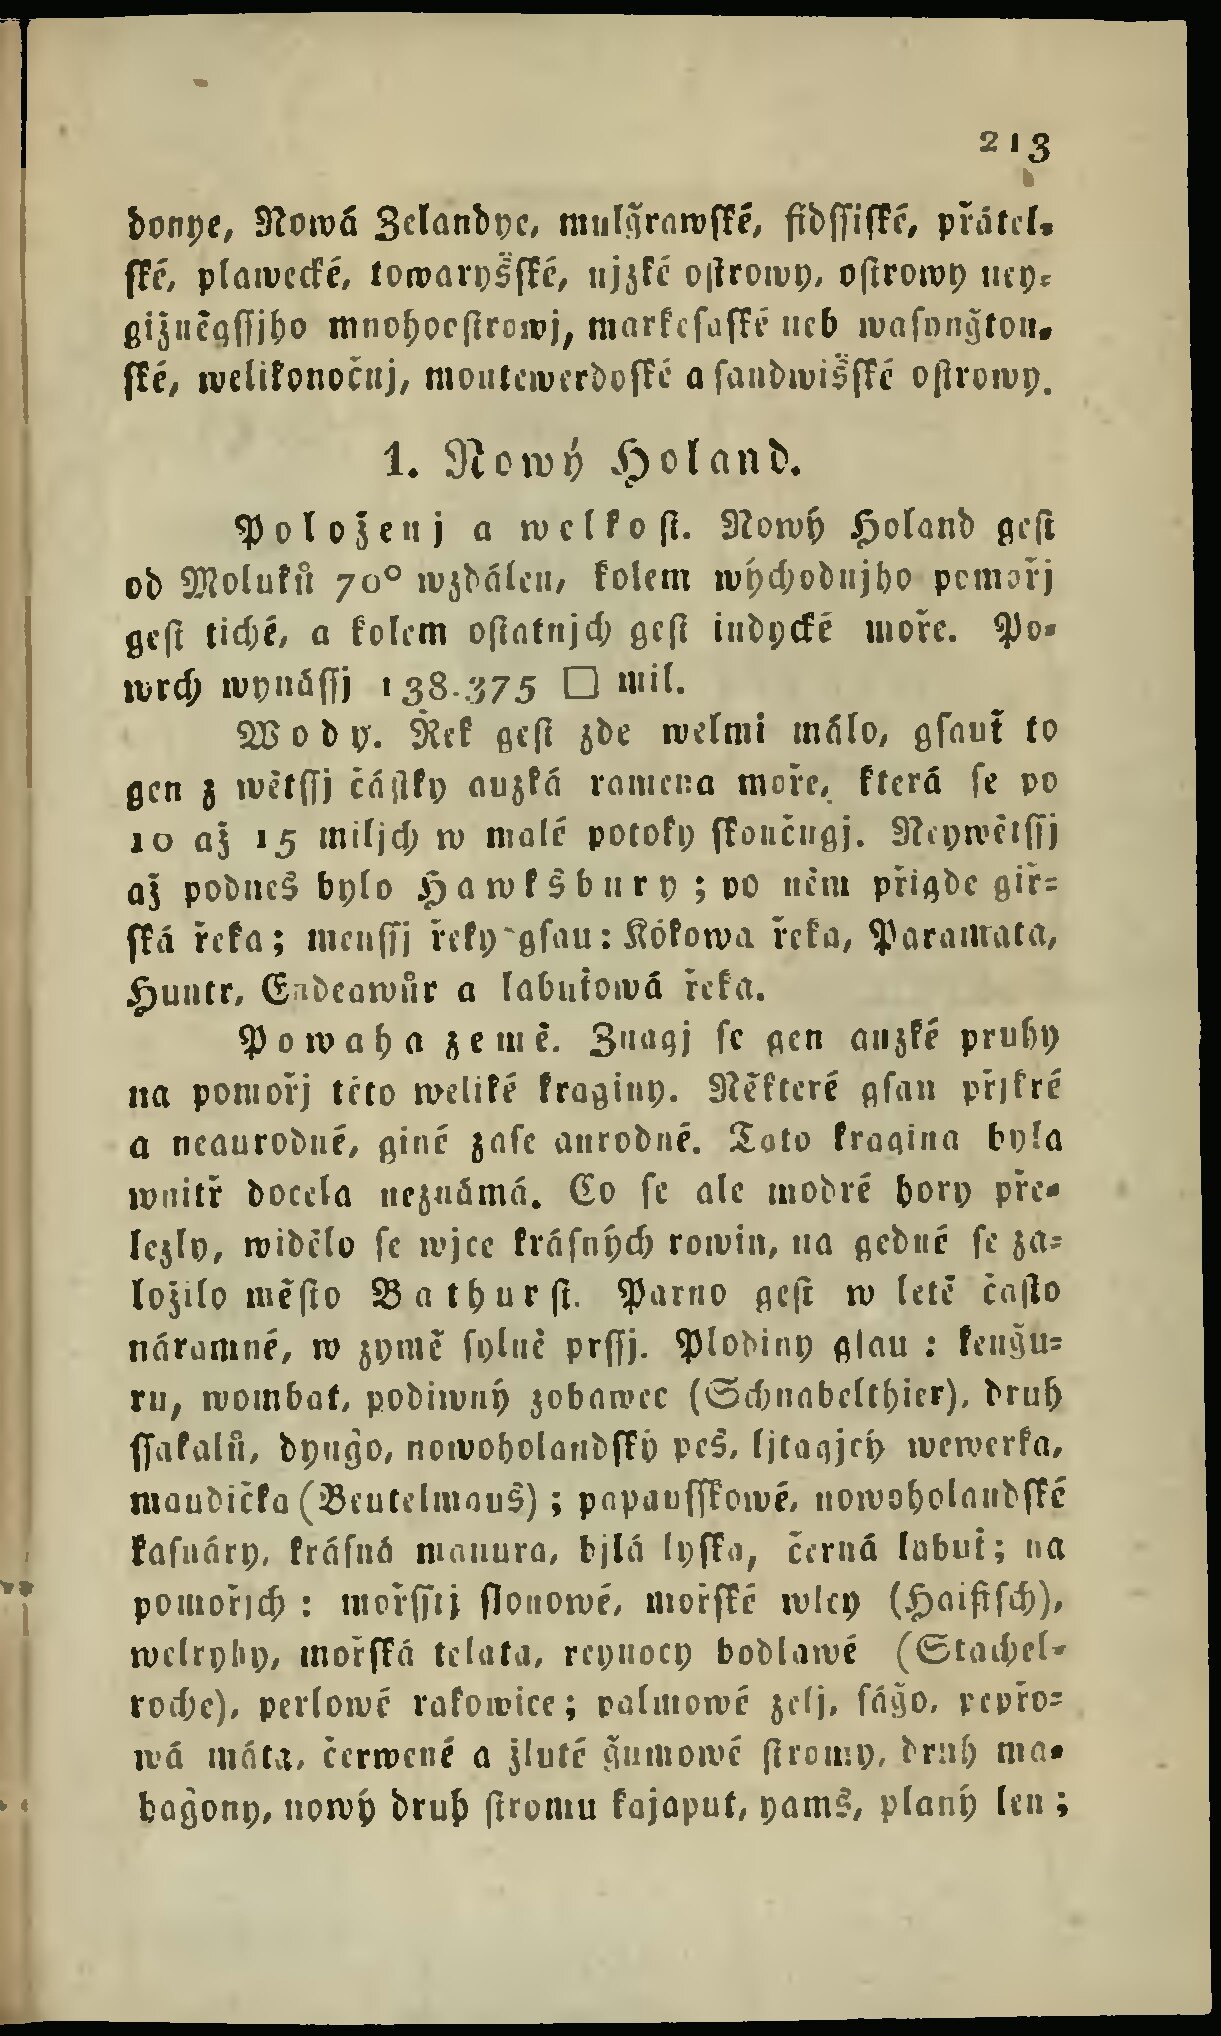 213
donye, Nowá Zelandye, mulğrawské, fidssiské, přátel-
ské, plawecké, towaryšské, njzké ostrowy, ostrowy ney-
gižněgssjho mnohoostrowj, markesaské neb wasyngğton-
ské, welikonočnj, montewerdoské a sandwišské ostrowy.
1. Nowý Holand.
Položenj a welkost. Nowý Holand gest
od Moluků 70° wzdálen, kolem wýchodnjho pomořj
gest tiché, a kolem ostatnjch gest indycké moře. Po-
wrch wynássj 138.375 □ mil.
Wody. Řek gest zde welmi málo, gsauť to
gen z wětssj částky auzká ramena moře, která se po
10 až 15 miljch w malé potoky skončugj. Neywětssj
až podnes bylo Hawksbury; po něm přigde giř-
ská řeka; menssj řeky gsau: Kókowa řeka, Paramata,
Huntr, Endeawůr a labuťowá řeka.
Powaha země. Znagj se gen auzké pruhy
na pomořj této weliké kraginy. Některé gsau přjkré
a neaurodné, giné zase aurodné. Tato kragina byla
wnitř docela neznámá. Co se ale modré hory pře-
lezly, widělo se wjce krásných rowin, na gedné se za-
ložilo město Bathurst. Parno gest w letě často
náramné, w zymě sylně prssj. Plodiny gsau: kenğu-
ru, wombat, podiwný zobawec (Schnabelthier), druh
ssakalů, dynğo, nowoholandský pes, ljtagjcý wewerka,
maudička (Beutelmaus); papausskowé, nowoholandské
kasuáry, krásná manura, bjlá lyska, černá labuť; na
pomořjch: mořsstj slonowé, mořské wlcy (Haifisch),
welryby, mořská telata, reynocy bodlawé (Stachel-
roche), perlowé rakowice; palmowé zelj, ságo, pepřo-
wá máta, čerwené a žluté ğumowé stromy, druh ma-
hağony, nowý druh stromu kajaput, yams, planý len;